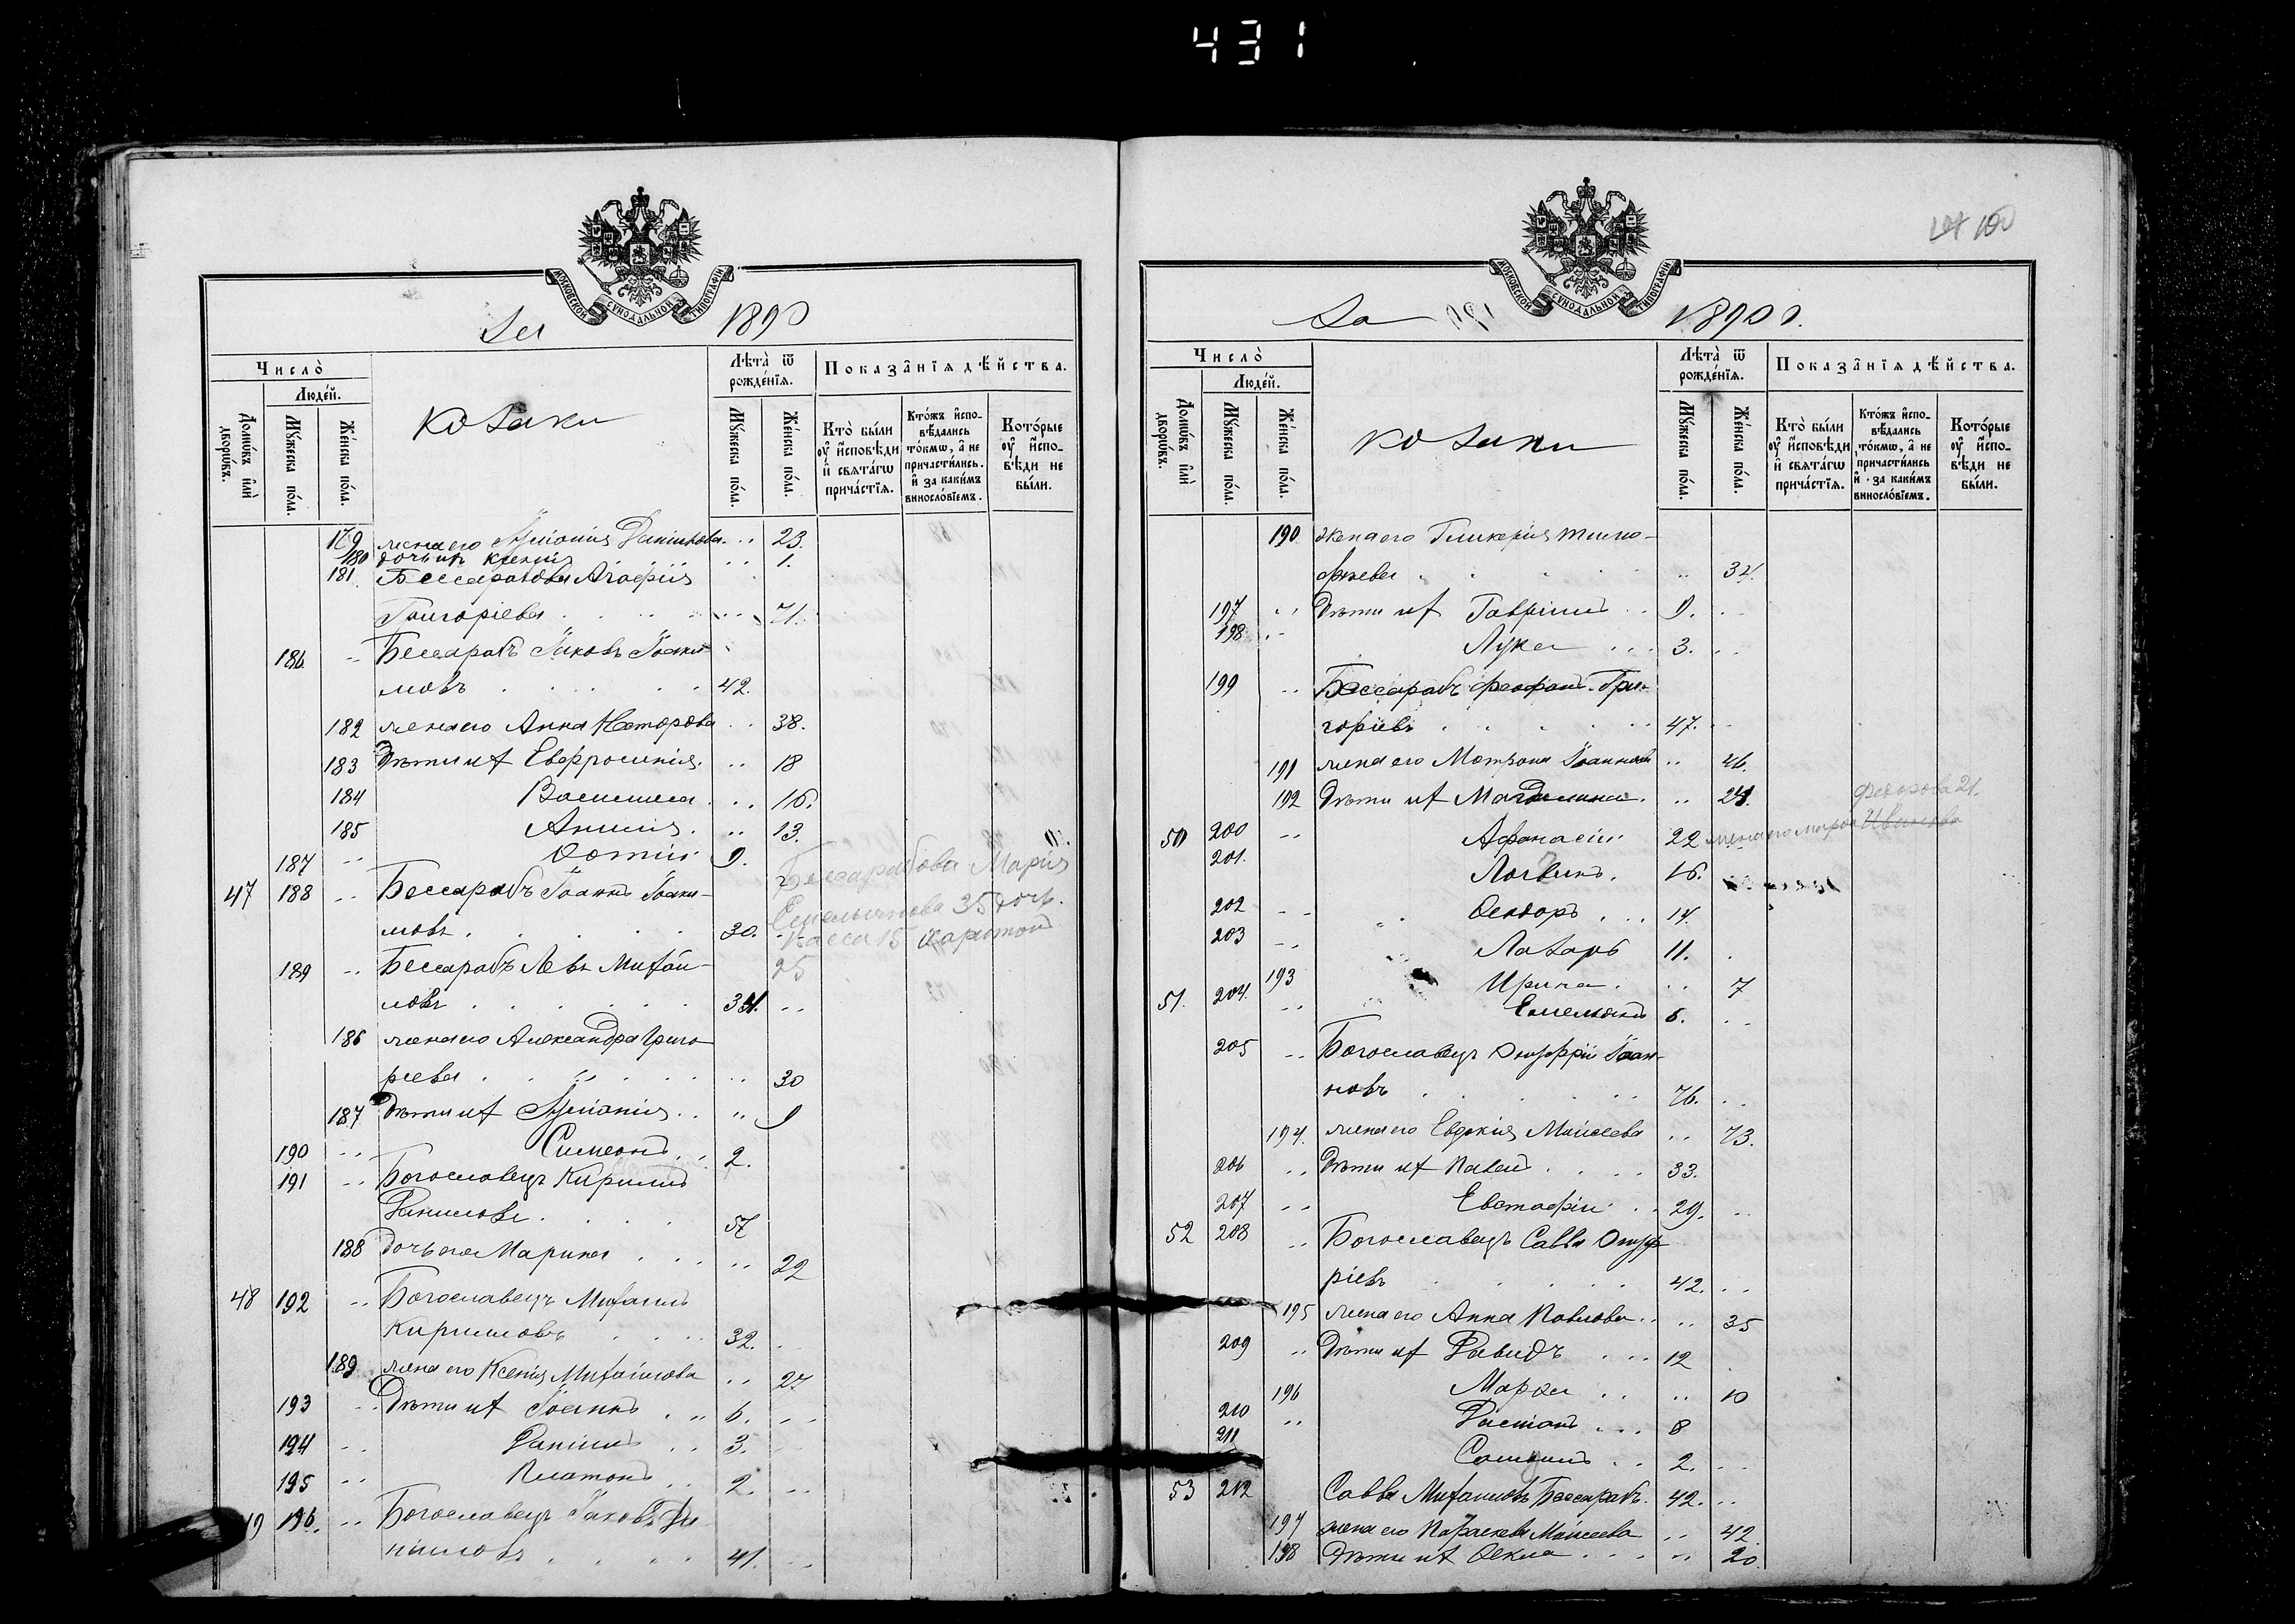 431
МОСКОВСКОЙ СѴНОДАЛЬНОЙ ТИПОГРАФІИ
За 1890
Число̀
Людéй.
Домѡ́въ и҆лѝ дворѡ́въ.
Мꙋ́жеска по́ла.
Же́нска по́ла.
Козаки
Лѣ́та ѿ рождéнїѧ.
Мꙋ́жеска по́ла.
Же́нска по́ла.
Показа̑нїѧ дѣ́йства.
Кто̀ бы́ли ᲂу҆ и҆сповѣ́ди и҆ свѧта́гѡ прича́стїѧ.
Кто́жъ и҆спо-вѣ́дались то́кмѡ, а҆ не причасти́лись. и҆ за каки́мъ винослóвїемъ.
Кото́рые ᲂу҆ и҆спо-вѣ́ди не бы́ли.
179 жена его Данилова 23.
180 дочь их Ксенія 1.
181 Бессарабова Агафія
Григоріева 71.
186. Бессарабъ Іаковъ Іоаки-
мовъ 42.
182 жена его Анна Несторова 38.
183 Дѣти их Евфросинія 18
184 Василиса 16.
185 13.
187 9.
Бессарабова Марія
47 188 Бессарабъ Іоаннъ Іоаки-
Емельянова 35 дочь
мовъ 30.
15 Харитонъ
189 Бессарабъ Левъ Михаи- 25
ловъ 34.
186 жена его Александра Григо-
ріева 30
187 Дѣти их 9
190 Симеонъ 2.
191 Богославецъ Кириллъ
Даниловъ 57
188 дочь его Марина 22
48 192 Богославецъ Михаилъ
Кирилловъ 32.
189 жена его Ксенія Михайлова 27
193 Дѣти их Іоаннъ 6.
194 Даніилъ 3.
195 Платонъ 2.
49 196. Богославецъ Іаковъ Да-
ниловъ 41.
100
МОСКОВСКОЙ СѴНОДАЛЬНОЙ ТИПОГРАФІИ
За 1890 г.
Число̀
Людéй.
Домѡ́въ и҆лѝ дворѡ́въ.
Мꙋ́жеска по́ла.
Же́нска по́ла.
Козаки
Лѣ́та ѿ рождéнїѧ.
Мꙋ́жеска по́ла.
Же́нска по́ла.
Показа̑нїѧ дѣ́йства.
Кто̀ бы́ли ᲂу҆ и҆сповѣ́ди и҆ свѧта́гѡ прича́стїѧ.
Кто́жъ и҆спо-вѣ́дались то́кмѡ, а҆ не причасти́лись и҆ за каки́мъ винослóвїемъ.
Кото́рые ᲂу҆ и҆спо-вѣ́ди не бы́ли.
190 жена его Гликерія Тимо-
фѣева 34.
197 Дѣти их Гавріилъ 9.
198 Лука 3.
199 Бессарабъ Феофанъ Гри-
горіевъ 47.
191 жена его Матрона Іоаннова 46.
192 Дѣти их Магдалина 24.
Федорова 21.
50 200 Афанасій 22 жена его Марфа Иванова
201. Логвинъ 16.
202 Ѳеодоръ 14.
203 Лазарь 11.
193 Ирина 7
51. 204. Емельянъ 5.
205 Богославецъ Онуфрій Іоан-
новъ 76.
194. жена его Евдокія Моисеева 73.
206 Дѣти их Павелъ 33.
207 Евстафій 29.
52 208 Богославецъ Савва Онуф-
ріевъ 42.
195 жена его Анна Павлова 35
209 Дѣти их Давидъ 12
196 Марфа 10
210 8
211 2.
53 212 Савва Михаиловъ Бессарабъ. 42.
197 жена его Параскева Моисеева 42
198 Дѣти их Ѳекла 20